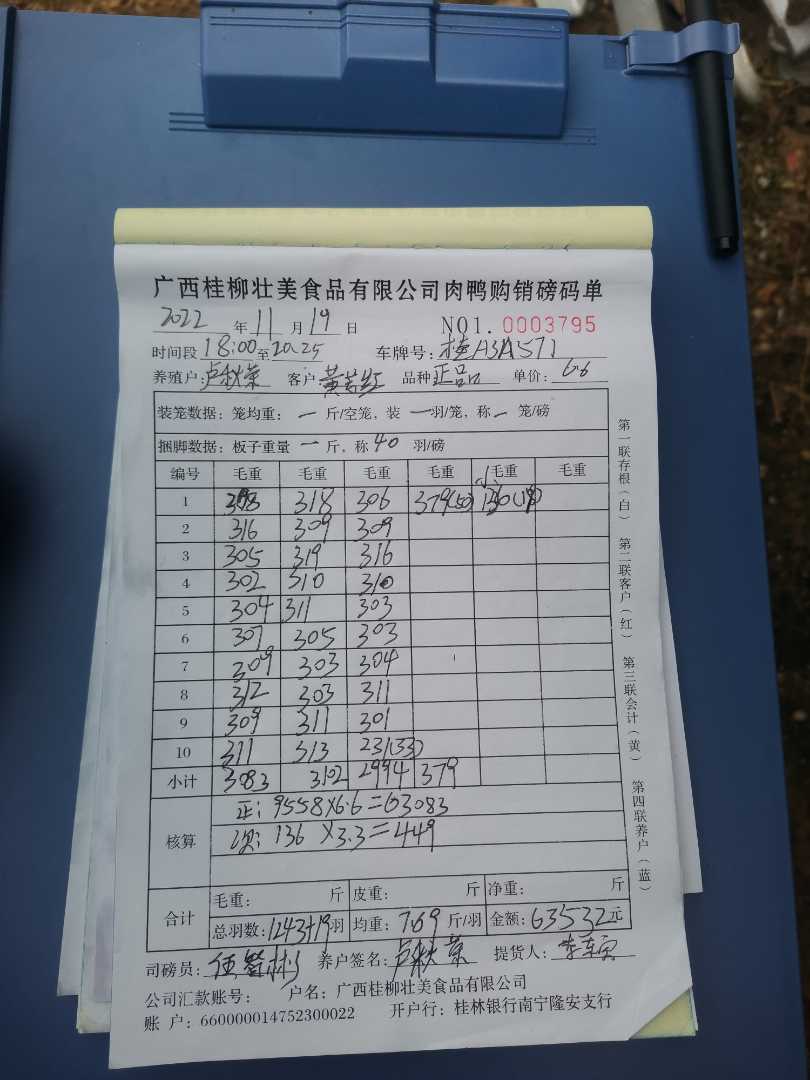 广西桂柳壮美食品有限公司肉鸭购销磅码单
2022 年 11 月 19 日 NO1. 0003795
时间段 18:00 至 20:25 车牌号: 桂A3A571
养殖户: 卢秋荣 客户: 黄若红 品种 正品 单价: 6.6
装笼数据: 笼均重: 一 斤/空笼, 装 一 羽/笼, 称 一 笼/磅
捆脚数据: 板子重量 一 斤, 称 40 羽/磅
编号 毛重 毛重 毛重 毛重 毛重 毛重
1 308 318 306 379(50) 136(19)
2 316 309 309
3 305 319 316
4 302 310 310
5 304 311 303
6 307 305 303
7 309 303 304
8 312 303 311
9 309 311 301
10 311 313 231(33)
小计 3083 3102 2994 379
核算 正: 9558×6.6=63083
次: 136×3.3=449
合计 毛重: 斤 皮重: 斤 净重: 斤
总羽数: 1243+19 羽 均重: 7.69 斤/羽 金额: 63532 元
司磅员: 养户签名: 卢秋荣 提货人:
公司汇款账号: 户名: 广西桂柳壮美食品有限公司
账 户: 660000014752300022 开户行: 桂林银行南宁隆安支行
第一联存根(白) 第二联客户(红) 第三联会计(黄) 第四联养户(蓝)